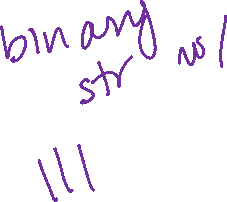 binary
str w/
111